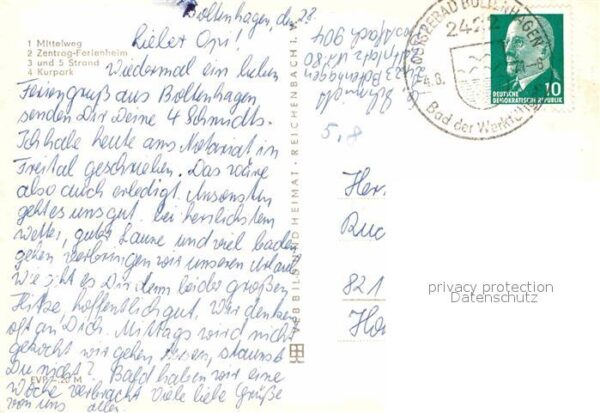 Boltenhagen, den 28.
1 Mittelweg
2 Zentrag-Ferienheim
3 und 5 Strand
4 Kurpark
Lieber Opi!
Wiedermal ein lieben
Feriengruß aus Boltenhagen
senden Dir Deine 4 Schmidts.
Ich habe heute ans Notariat in
Freital geschrieben. Das wäre
also auch erledigt. Ansonsten
geht es uns gut. bei herrlichstem
Wetter, guter Laune und viel baden
gehen verbringen wir unseren Urlaub.
Wie geht es Dir denn bei der großen
Hitze, hoffentlich gut. Wir denken
oft an Dich. Mittags wird nicht
gekocht wir gehen essen, staunst
Du nicht? Bald haben wir eine
Woche verbracht Viele liebe Grüße
von uns allen.
EVP -,20 M
VEB BILD UND HEIMAT · REICHENBACH I. V.
Schmidt
Boltenhagen
904
OSTSEEBAD BOLTENHAGEN
2422
4.8.
Bad der Werktätigen
DEUTSCHE
DEMOKRATISCHE REPUBLIK
10
5.8
Her
821
privacy protection
Datenschutz